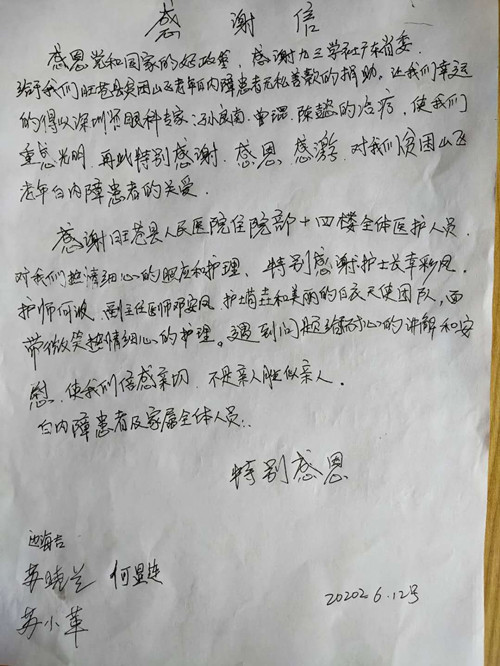 感谢信
感恩党和国家的好政策，感谢九三学社广东省委
给予我们旺苍县贫困山区老年白内障患者无私善款的捐助。让我们幸运
的得以深圳 眼科专家：孙良南、曾琨、陈懿的治疗，使我们
重感光明，再此特别感谢、感恩、感激、对我们贫困山区
老年白内障患者的关爱。
感谢旺苍县人民医院住院部十四楼全体医护人员，
对我们热情细心的照应和护理，特别感谢护士长 彩凤。
护师何波、副主任医师邓安凤、护 和美丽的白衣天使团队，面
带微笑热情细心的护理。遇到问题 耐心的讲解和安
慰，使我们倍感亲切，不是亲人胜似亲人。
白内障患者及家属全体人员：
特别感恩
苏晓兰 何显连
苏小革
20202.6.12号